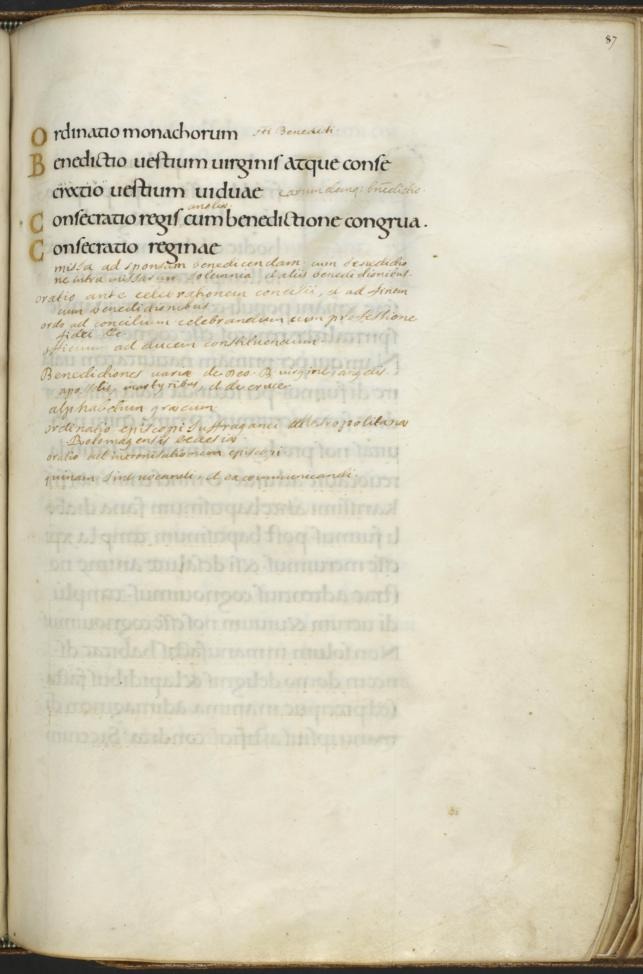 87
Ordinatio monachorum sti Benedicti
Benedictio uestium uirginis atque conse
cratio uestium uiduae earumdemq; bnedictio.
anglix
Consecratio regis cum benedictione congrua.
Consecratio reginae
missa ad sponsam benedicendam, cum benedictio
ne intra missarum solemnia, et aliis benedictionibus.
oratio ante celebrationem concilii, et ad finem
cum benedictionibus
ordo ad concilium celebrandum cum professione
fidei &c
officium ad ducem constituendum
Benedictiones variæ de Deo. B virgine, angelis.
apostolis, martyribus, et de cruce
alphabetum græcum
ordinatio episcopi suffraganei metropolitanæ
Rotomagensis ecclesiæ
oratio ad episcopi
quinam sint uocandi, et excommunicandi